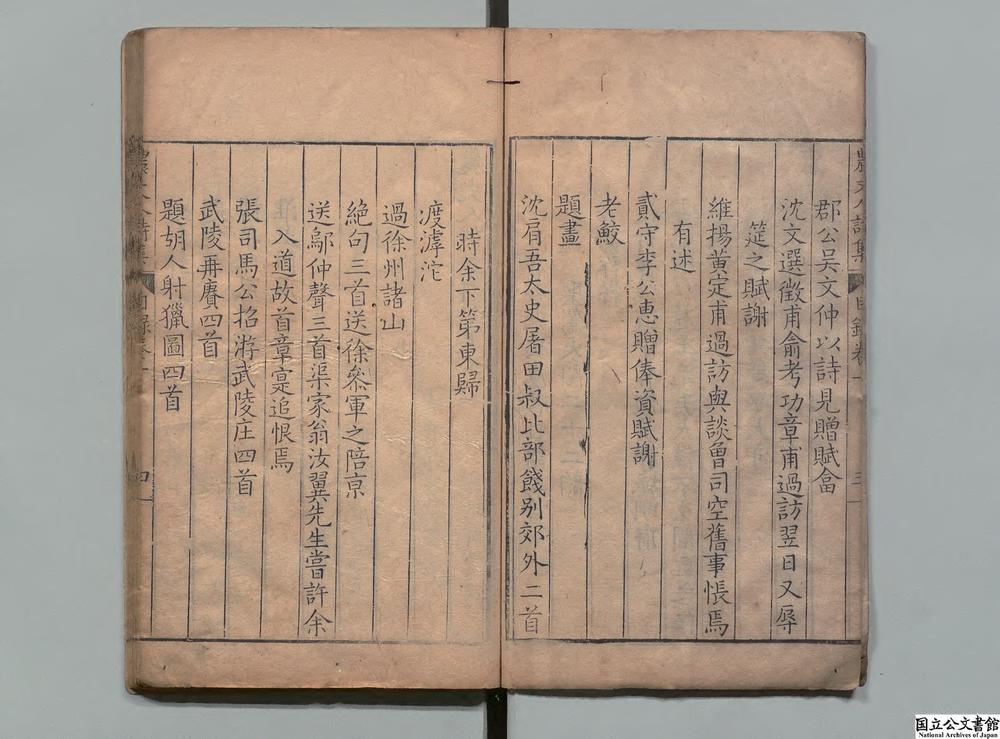 郡公吳文仲以詩見贈賦畣
沈文選徵甫俞考功章甫過訪翌日又辱
筵之賦謝
維揚黃定甫過訪與談魯司空舊事悵焉
有述
貳守李公惠贈俸資賦謝
老鮫
題畫
沈肩吾太史屠田叔比部餞别郊外二首
時余下第東歸
渡滹沱
過徐州諸山
絕句三首送徐叅軍之陪京
送鄔仲聲三首渠家翁汝翼先生嘗許余
入道故首章寔追恨焉
張司馬公招游武陵庄四首
武陵再賡四首
題胡人射獵圖四首
四
国立公文書館
National Archives of Japan